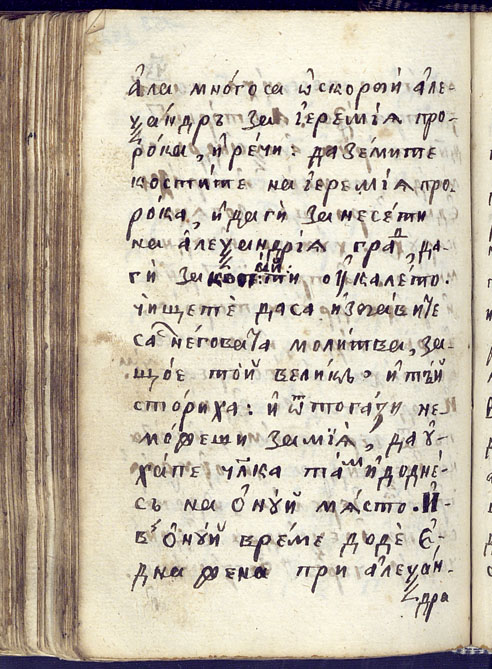 а҆ла мно́госа ѡ҆скорбѝ а҆ле-
ѯа́ндръ за і҆еремі́а про-
ро́ка, и҆ре́чи: даѕе́мите
кости́те на і҆еремі́а про-
ро́ка, и҆ даги̑ занесе́ти
на а҆леѯандрі́а граⷣ, да-
ги̑ оу҆ кале́то.
чи́щетѐ даса и҆зба́вите
са неговата моли́тва, за-
що́е то́й вели́къ и҆ тъ́й
стори́ха: и҆ ѿтога́ѕи не
мо́жеши замі́ѧ, да у҆-
ха́пе чл҃ка та́мъ и҆ додне́-
съ на ѻ҆ну́й мѧ́сто. И҆
в ѻ҆ну́й вре́ме додѐ е҆-
дна жена при а҆леѯа́н-
дра